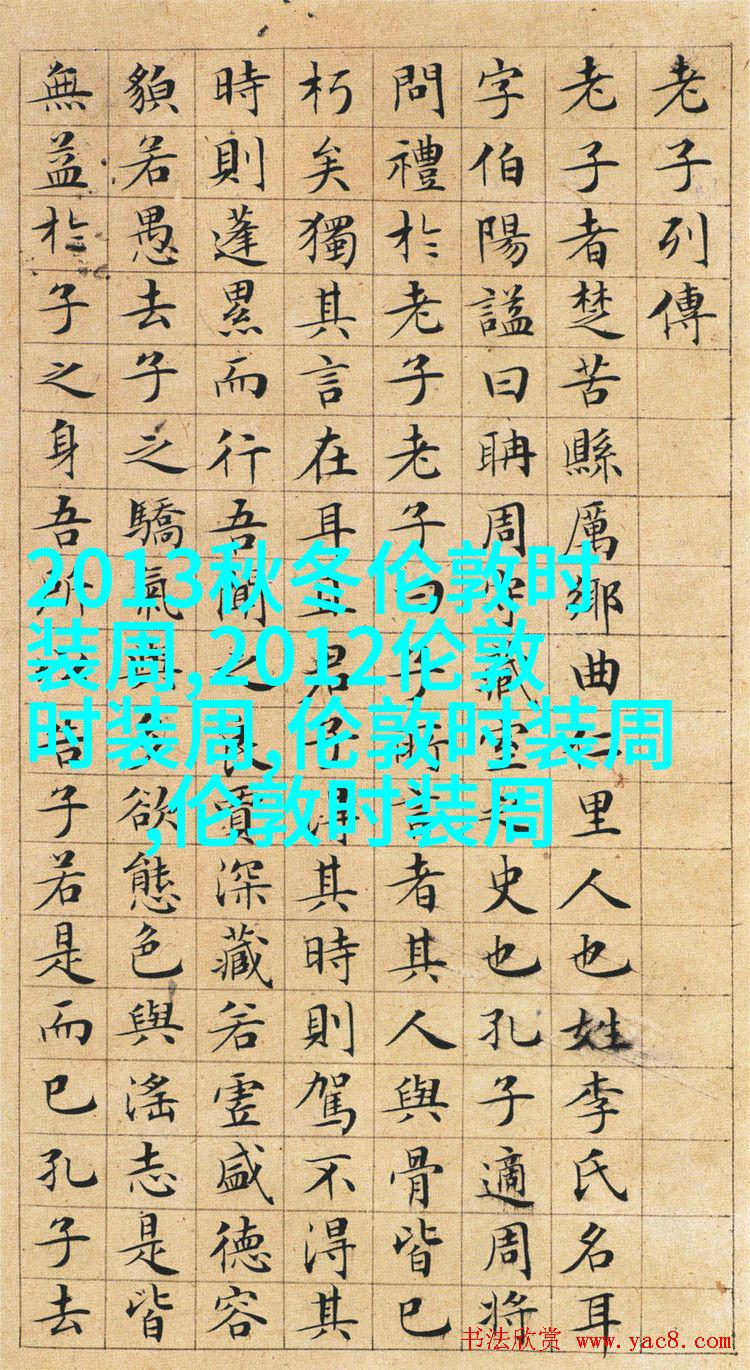 老子列傳
老子者楚苦縣厲鄉曲仁里人也姓李氏名耳
字伯陽謚曰聃周守藏室之史也孔子適周將
問禮於老子老子曰子所言者其人與骨皆已
朽矣獨其言在耳且君子得其時則駕不得其
時則蓬累而行吾聞之良賈深藏若虛盛德容
貌若愚去子之驕氣與多欲態色與淫志是皆
無益於子之身吾所以告子若是而已孔子去
2013秋冬伦敦时
装周,2012伦敦
时装周,伦敦时装周
,伦敦时装周
书法欣赏 www.yac8.com